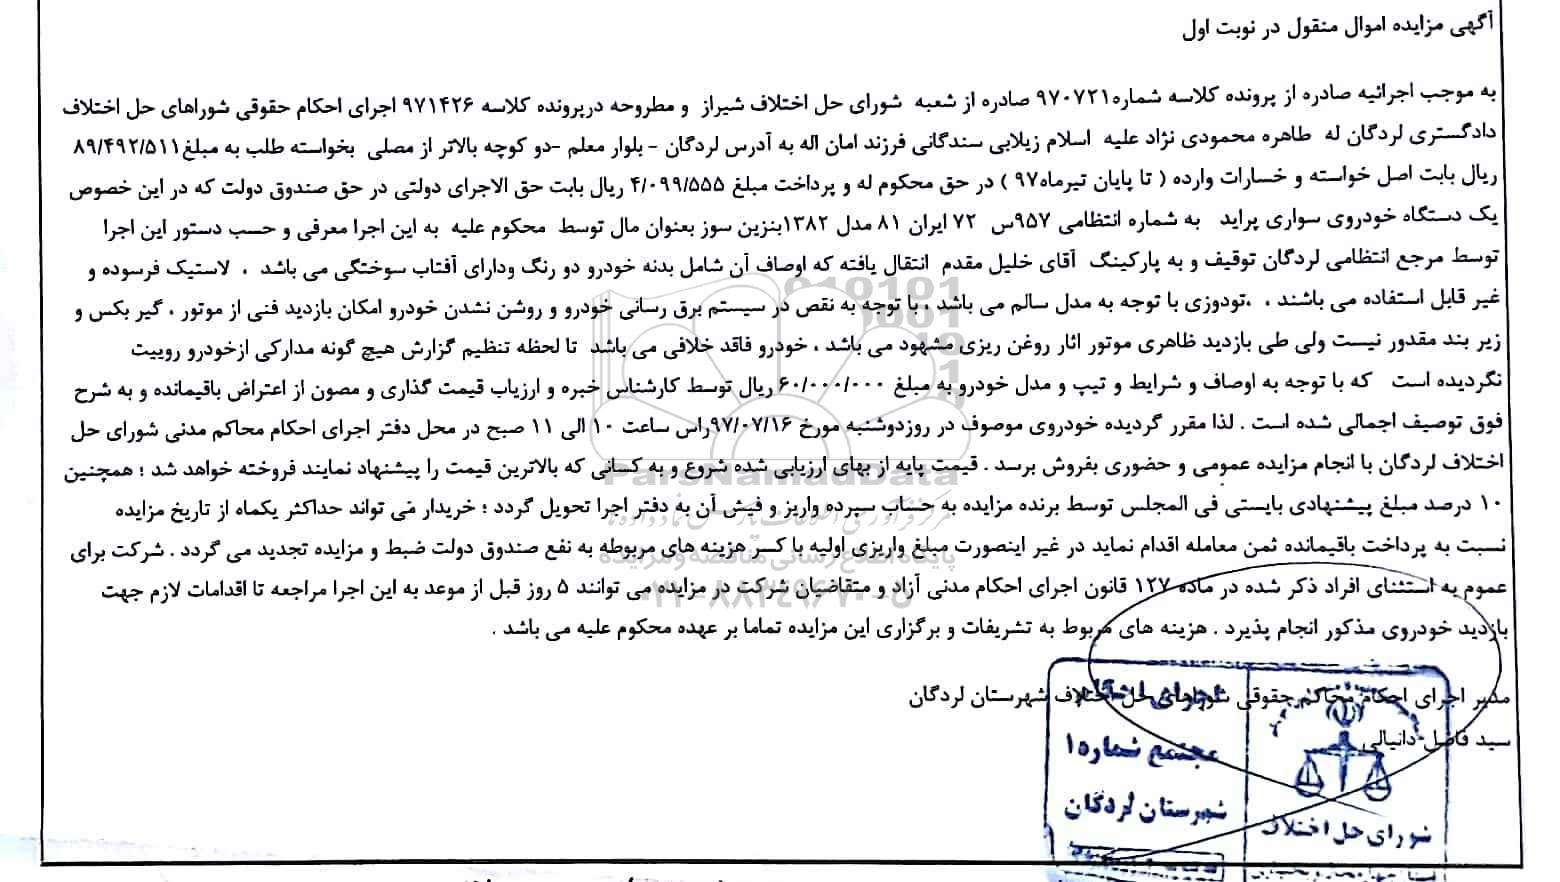 آگهی مزایده اموال منقول در نوبت اول
به موجب اجرائیه صادره از پرونده کلاسه شماره۹۷۰۷۲۱ صادره از شعبه شورای حل اختلاف شیراز و مطروحه درپرونده کلاسه ۹۷۱۴۲۶ اجرای احکام حقوقی شوراهای حل اختلاف
دادگستری لردگان له طاهره محمودی نژاد علیه اسلام زیلابی سندگانی فرزند امان اله به آدرس لردگان – بلوار معلم –دو کوچه بالاتر از مصلی بخواسته طلب به مبلغ۸۹/۴۹۲/۵۱۱
ریال بابت اصل خواسته و خسارات وارده ( تا پایان تیرماه۹۷ ) در حق محکوم له و پرداخت مبلغ ۴/۰۹۹/۵۵۵ ریال بابت حق الاجرای دولتی در حق صندوق دولت که در این خصوص
یک دستگاه خودروی سواری پراید به شماره انتظامی ۹۵۷س ۷۲ ایران ۸۱ مدل ۱۳۸۲بنزین سوز بعنوان مال توسط محکوم علیه به این اجرا معرفی و حسب دستور این اجرا
توسط مرجع انتظامی لردگان توقیف و به پارکینگ آقای خلیل مقدم انتقال یافته که اوصاف آن شامل بدنه خودرو دو رنگ ودارای آفتاب سوختگی می باشد ، لاستیک فرسوده و
غیر قابل استفاده می باشند ، ،تودوزی با توجه به مدل سالم می باشد ، با توجه به نقص در سیستم برق رسانی خودرو و روشن نشدن خودرو امکان بازدید فنی از موتور ، گیر بکس و
زیر بند مقدور نیست ولی طی بازدید ظاهری موتور اثار روغن ریزی مشهود می باشد ، خودرو فاقد خلافی می باشد تا لحظه تنظیم گزارش هیچ گونه مدارکی ازخودرو روییت
نگردیده است که با توجه به اوصاف و شرایط و تیپ و مدل خودرو به مبلغ ۶۰/۰۰۰/۰۰۰ ریال توسط کارشناس خبره و ارزیاب قیمت گذاری و مصون از اعتراض باقیمانده و به شرح
فوق توصیف اجمالی شده است . لذا مقرر گردیده خودروی موصوف در روزدوشنبه مورخ ۹۷/۰۷/۱۶راس ساعت ۱۰ الی ۱۱ صبح در محل دفتر اجرای احکام محاکم مدنی شورای حل
اختلاف لردگان با انجام مزایده عمومی و حضوری بفروش برسد . قیمت پایه از بهای ارزیابی شده شروع و به کسانی که بالاترین قیمت را پیشنهاد نمایند فروخته خواهد شد ؛ همچنین
۱۰ درصد مبلغ پیشنهادی بایستی فی المجلس توسط برنده مزایده به حساب سپرده واریز و فیش آن به دفتر اجرا تحویل گردد ؛ خریدار می تواند حداکثر یکماه از تاریخ مزایده
نسبت به پرداخت باقیمانده ثمن معامله اقدام نماید در غیر اینصورت مبلغ واریزی اولیه با کسر هزینه های مربوطه به نفع صندوق دولت ضبط و مزایده تجدید می گردد . شرکت برای
عموم به استثنای افراد ذکر شده در ماده ۱۲۷ قانون اجرای احکام مدنی آزاد و متقاضیان شرکت در مزایده می توانند ۵ روز قبل از موعد به این اجرا مراجعه تا اقدامات لازم جهت
بازدید خودروی مذکور انجام پذیرد . هزینه های مربوط به تشریفات و برگزاری این مزایده تماما بر عهده محکوم علیه می باشد .
مدیر اجرای احکام محاکم حقوقی شوراهای حل اختلاف شهرستان لردگان
سید فاضل دانیالی
اجرای احکام
مجتمع شماره ۱
شهرستان لردگان
شورای حل اختلاف
ParsNamadData
پایگاه اطلاع رسانی مناقصه و مزایده